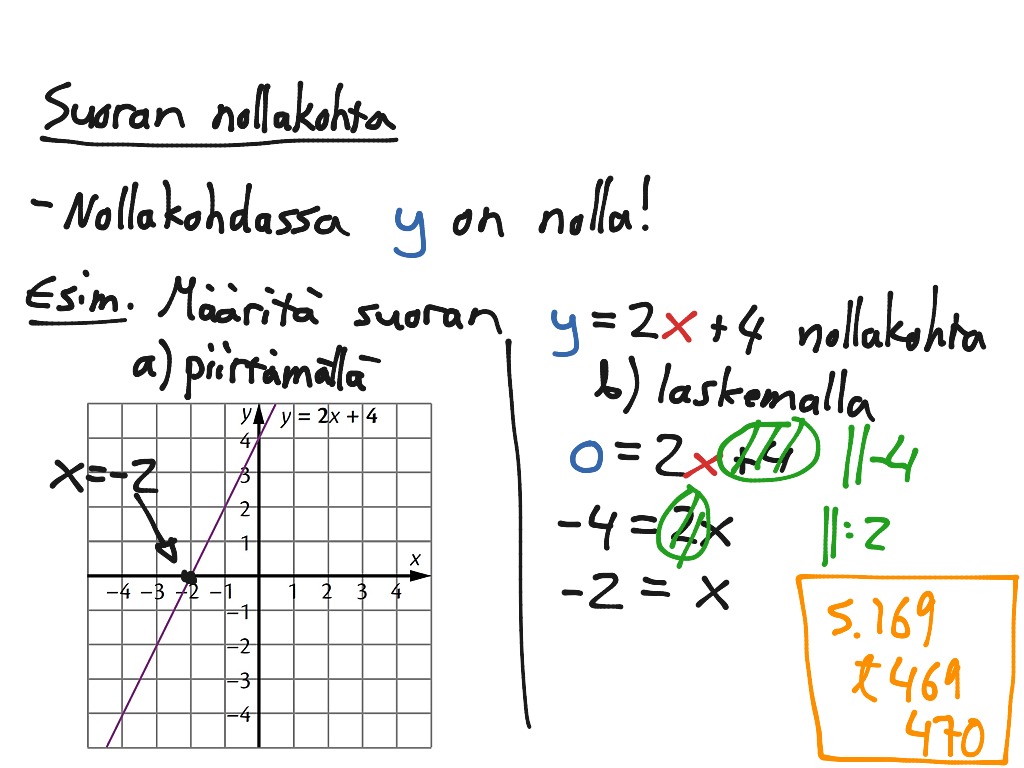 Suoran nollakohta
- Nollakohdassa y on nolla!
Esim. Määritä suoran y = 2x + 4 nollakohta
a) piirtämällä
y
y = 2x + 4
4
3
2
1
x
-4 -3 -2 -1 1 2 3 4
-1
-2
-3
-4
x = -2
b) laskemalla
0 = 2x + 4 ||-4
-4 = 2x ||:2
-2 = x
s.169
t 469
470